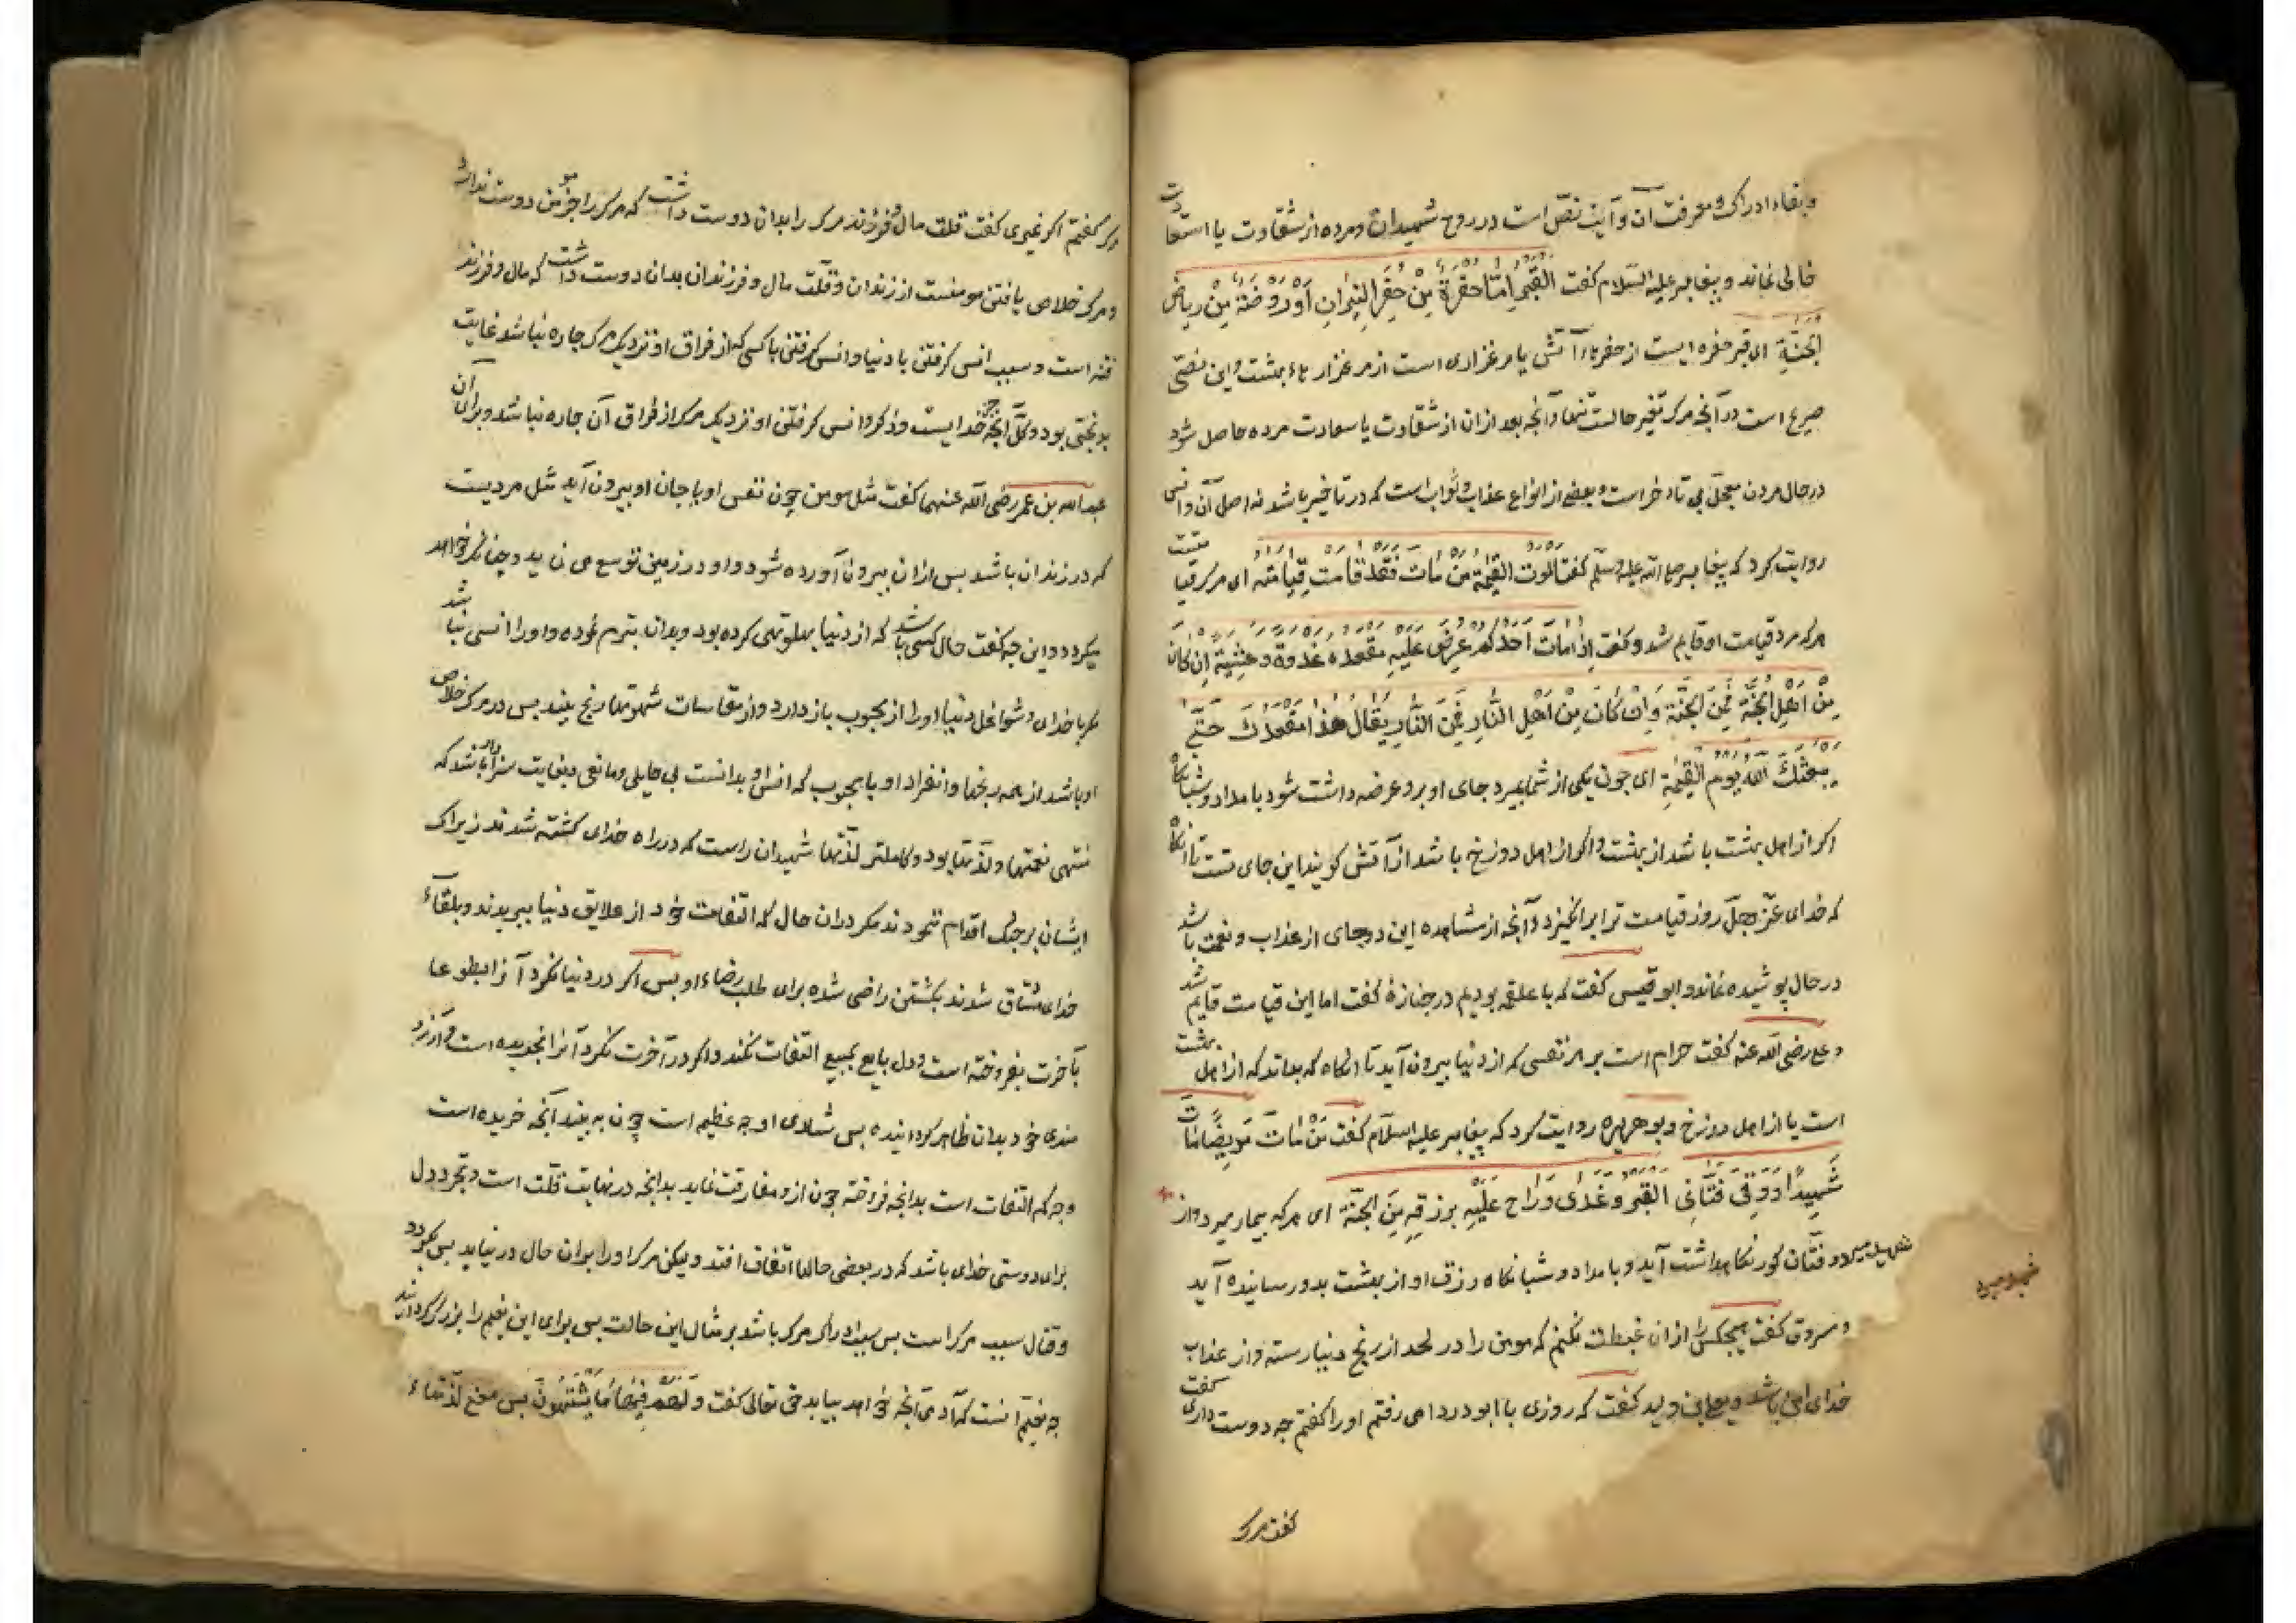 وبقاء ادراک و معرفت آن و آیت نصّ است در روح شهیدان و مرده از شقاوت یا سعادت
خالی نماند و پیغامبر علیه السلام گفت القبر اما حفرة من حفر النیران او روضة من ریاض
الجنة ای قبر حفره ایست از حفرهاء آتش یا مرغزاری است از مرغزارهاء بهشت و این نصّی
صریح است در آنچه مرک تغیر حالست تنها و آنچه بعد ازان از شقاوت یا سعادت مرده حاصل شود
در حال مردن معجّل بی تاخر است و بعضی از انواع عذاب و ثواب است که در تاخیر باشد نه اصل آن و انس
روایت کرد که پیغامبر صلی الله علیه وسلم گفت الموت القیمة من مات فقد قامت قیامته ای مرک قیامتست
هرکه مرد قیامت او قایم شد و گفت اذا مات احدکم عرض علیه مقعده غدوة و عشیة ان کان
من اهل الجنة فمن الجنة وان کان من اهل النار فمن النار یقال هذا مقعدک حتی
یبعثک الله یوم القیمة ای چون یکی از شما بمیرد جای او برو عرضه داشت شود بامداد و شبانگاه
اگر از اهل بهشت باشد از بهشت و اگر از اهل دوزخ باشد از آتش گویند این جای تست تا آنگاه
که خدای عزّ وجلّ روز قیامت ترا برانگیزد و آنچه از مشاهده این دو جای از عذاب و نعمت باشد
در حال پوشیده نماند و ابو قیس گفت که با علقمه بودیم در جنازهٔ گفت اما این قیامت قایم شد
و علی رضی الله عنه گفت حرام است بر هر نفسی که از دنیا بیرون آید تا انگاه که بداند که از اهل بهشت
است یا از اهل دوزخ و بو هریره روایت کرد که پیغامبر علیه السلام گفت من مات مریضا مات
شهیدا و وقی فتّانی القبر و غدی و راح علیه برزقه من الجنة ای هرکه بیمار میرد و از
فتّان گور نگاه داشت آید و بامداد و شبانگاه رزق او از بهشت بدو رسانیده آید
شهید میرد
و مسروق گفت هیچکس را ازان غبطت نکنم که مومن را در لحد از رنج دنیا رسته و از عذاب
خدای ایمن باشد و یعلی بن ولید گفت که روزی با ابو دردا می رفتم او را گفتم چه دوست داری گفت
گفت مرک
و گر گفتم اگر نمیری گفت قلت مال و فرزند مرک را بدان دوست داشت که مرک را جز مومن دوست ندارد
و مرک خلاص یافتن مومنست از زندان و قلّت مال و فرزندان بدان دوست داشت که مال و فرزند
فتنه است و سبب انس گرفتن با دنیا و انس گرفتن با کسی که از فراق او نزدیک مرک چاره نباشد غایت
بدبختی بود و کلّ آنچه جز خدایست و ذکر و انس گرفتن او نزدیک مرک از فراق آن چاره نباشد و برای آن
عبدالله بن عمر رضی الله عنهما گفت مثل مومن چون نفس او یا جان او بیرون آید مثل مردیست
که در زندان باشد پس ازان بیرون آورده شود و او در زمین توسع می نماید و چنانکه خواهد
میگردد و این چه گفت حال کسی باشد که از دنیا پهلو تهی کرده بود و بدان تبرم نموده و او را انسی نباشد
مگر با خدای و شواغل دنیا او را از محبوب باز دارد و از مقاسات شهوتها رنج بیند پس در مرک خلاص
او باشد از همه رنجها و انفراد او با محبوب که انس او بدانست بی حایلی و مانعی و بغایت سزاوار باشد که
منتهی نعمتها و لذّتها بود و کاملتر لذّتها شهیدان راست که در راه خدای کشته شدند زیراک
ایشان بر جنک اقدام ننمودند مگر دران حال که التفات خود از علایق دنیا ببریدند و بلقاء
خدای مشتاق شدند بکشتن راضی شده برای طلب رضاء او پس اگر در دنیا نگرد آنرا بطوعا
بآخرت بفروخته است و دل بایع بمبیع التفات نکند و اگر در آخرت نگرد آنرا بخریده است و آرزو
مندی خود بدان ظاهر گردانیده پس شادی او چه عظیم است چون به بیند آنچه خریده است
و چه کم التفات است بدانچه فروخته چون ازو مفارقت نماید بدانچه در نهایت قلّت است و تجرد دل
برای دوستی خدای باشد که در بعضی حالها اتفاق افتد ولیکن مرک او را بران حال در نیاید پس بگردد
و قتال سبب مرک است پس سبب ادراک مرک باشد بر مثال این حالت پس برای این نعیم را بزرک گردانند
چه نعیم آنست که آدمی آنچه خواهد بیابد حق تعالی گفت و لهم فیها ما یشتهون پس جمع لذّتهاء